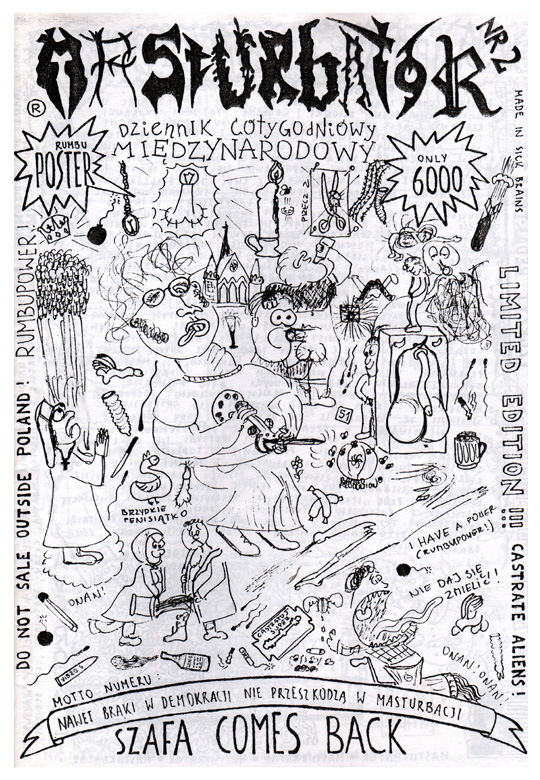 MASTURBATOR
NR 2
®
DZIENNIK COTYGODNIOWY
MIĘDZYNARODOWY
RUMBU
POSTER
ONLY
6000
MADE IN SICK BRAINS
PRECZ Z
LIMITED EDITION !!! CASTRATE ALIENS!
DO NOT SALE OUTSIDE POLAND! RUMBUPOWER!
51
BRZYDKIE
PENISIĄTKO
I HAVE A POWER
(RUMBUPOWER!)
NIE DAJ SIĘ
ZMIELIĆ!
ONAN!
ONAN! ONAN!
MOTTO NUMERU:
NAWET BRAKI W DEMOKRACJI NIE PRZESZKODZĄ W MASTURBACJI
SZAFA COMES BACK